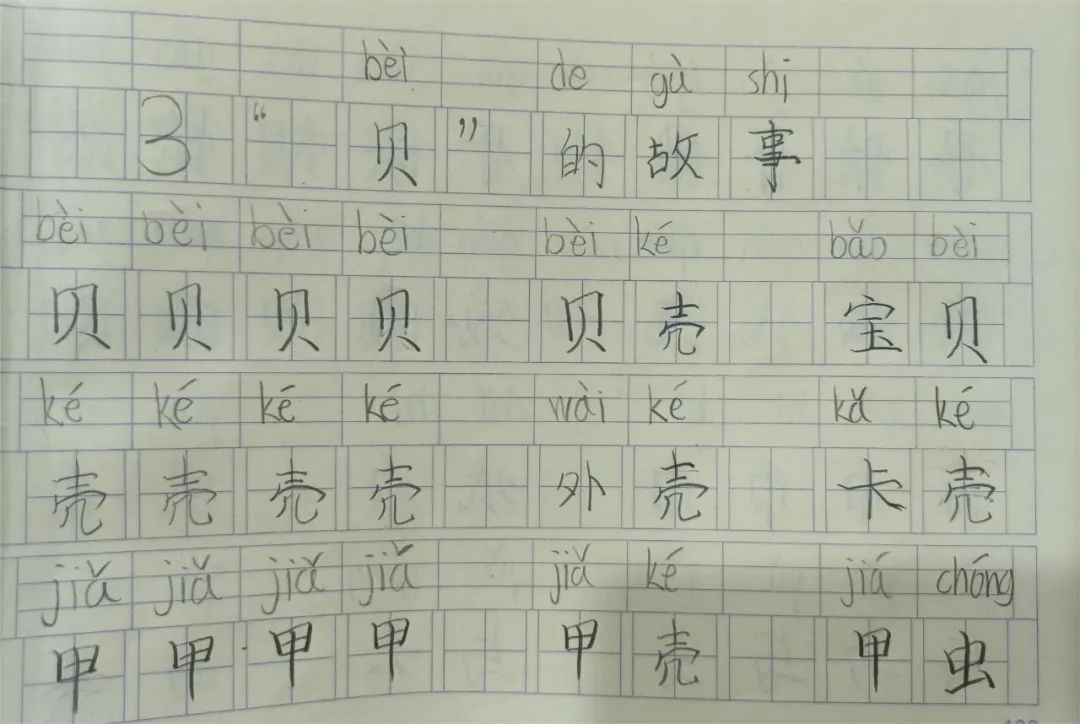 bèi de gù shi
3 “贝”的故事
bèi bèi bèi bèi bèi ké bǎo bèi
贝 贝 贝 贝 贝壳 宝贝
ké ké ké ké wài ké kǎ ké
壳 壳 壳 壳 外壳 卡壳
jiǎ jiǎ jiǎ jiǎ jiǎ ké jiá chóng
甲 甲 甲 甲 甲壳 甲虫